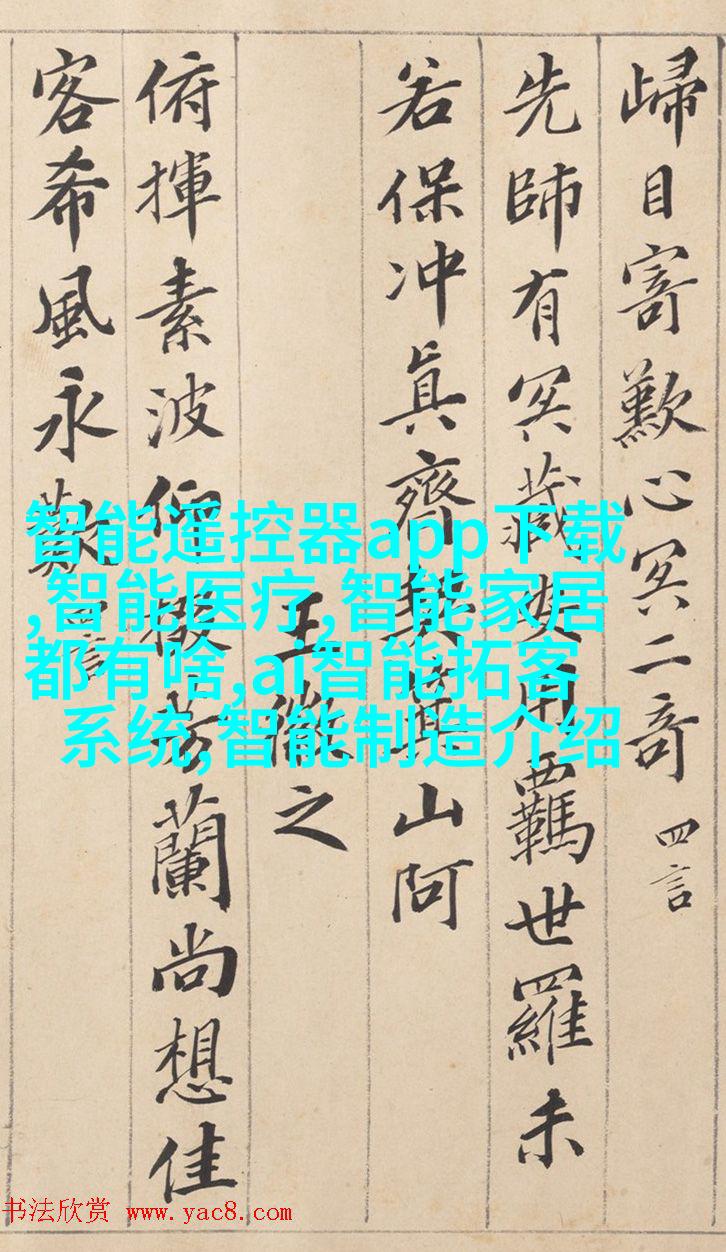 歸目寄歎心冥二奇 四言
先師有冥藏安用羈世羅未
若保冲真齊契箕山阿
王徽之
俯揮素波仰掇芳蘭尚想佳
客希風永歎 言
智能遥控器app下载
,智能医疗,智能家居
都有啥,ai智能拓客
系统,智能制造介绍
书法欣赏 www.yac8.com